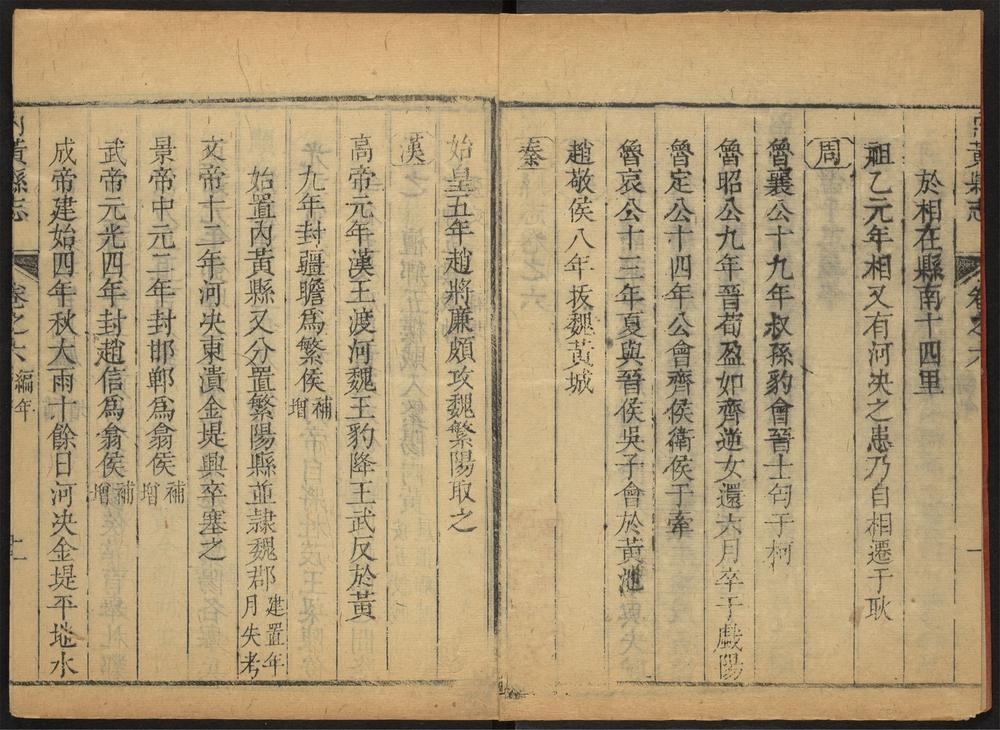 內黃縣志 卷之六
於相在縣南十四里
祖乙元年相又有河決之患乃自相遷于耿
周
魯襄公十九年叔孫豹會晉士匄于柯
魯昭公九年晉荀盈如齊逆女還六月卒于戲陽
魯定公十四年公會齊侯衛侯于牽
魯哀公十三年夏與晉侯吳子會於黃池
趙敬侯八年拔魏黃城
秦
始皇五年趙將廉頗攻魏繁陽取之
漢
高帝元年漢王渡河魏王豹降王武反於黃
九年封疆瞻爲繁侯補增
始置內黃縣又分置繁陽縣並隷魏郡建置年月失考
文帝十二年河决東潰金堤興卒塞之
景帝中元二年封邯鄲爲翕侯補增
武帝元光四年封趙信爲翕侯補增
成帝建始四年秋大雨十餘日河决金堤平地水
內黃縣志 卷之六 編年